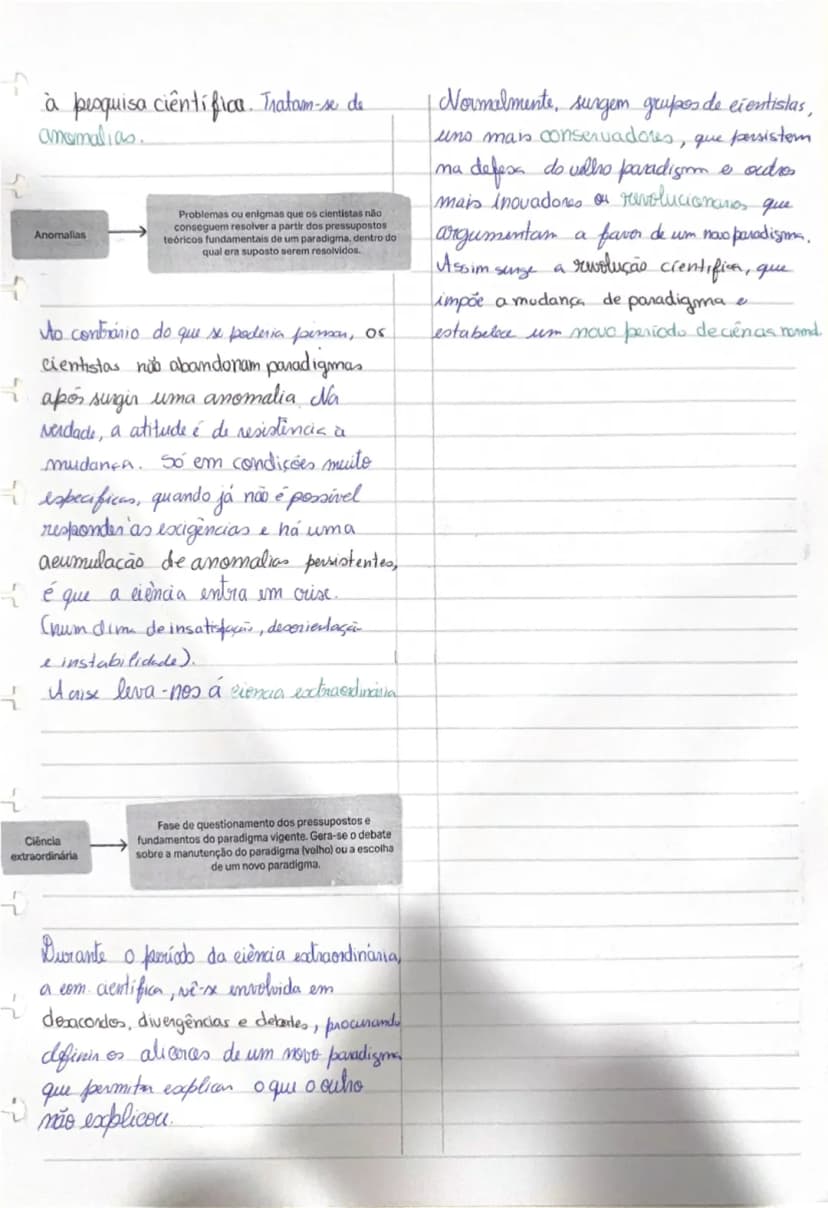 à pesquisa científica. Tratam-se de
anomalias.
Anomalias
Problemas ou enigmas que os cientistas não
conseguem resolver a partir dos pressupostos
teóricos fundamentais de um paradigma, dentro do
qual era suposto serem resolvidos.
Ao contrário do que se poderia pensar, os
cientistas não abandonam paradigmas
após surgir uma anomalia. Na
verdade, a atitude é de resistência à
mudança. Só em condições muito
especificas, quando já não é possível
responder às exigências e há uma
acumulação de anomalias persistentes,
é que a ciência entra em crise.
(num clima de insatisfação, desorientação
e instabilidade).
A crise leva-nos á ciência extraordinária
Ciência
extraordinária
Fase de questionamento dos pressupostos e
fundamentos do paradigma vigente. Gera-se o debate
sobre a manutenção do paradigma (velho) ou a escolha
de um novo paradigma.
Durante o período da ciência extraordinária,
a com. científica, vê-se envolvida em
desacordos, divergências e debates, procurando
definir os alicerces de um novo paradigma
que permita explicar o que o outro
não explicou.
Normalmente, surgem grupos de cientistas,
uns mais conservadores, que persistem
na defesa do velho paradigma e outros
mais inovadores ou revolucionários que
argumentam a favor de um novo paradigma.
Assim surge a revolução científica, que
impõe a mudança de paradigma e
estabelece um novo período de ciência normal.